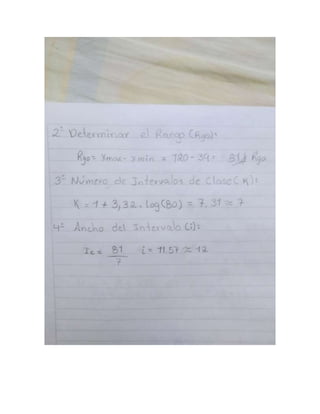 2º Determinar el Rango (Rgo):
Rgo = Xmax - xmin = 120 - 39 = 81 Rgo
3º Número de Intervalos de Clase (K):
K = 1 + 3,32 . log (80) = 7,31 ≈ 7
4º Ancho del Intervalo (i):
Ic = 81 i = 11,57 ≈ 12
7